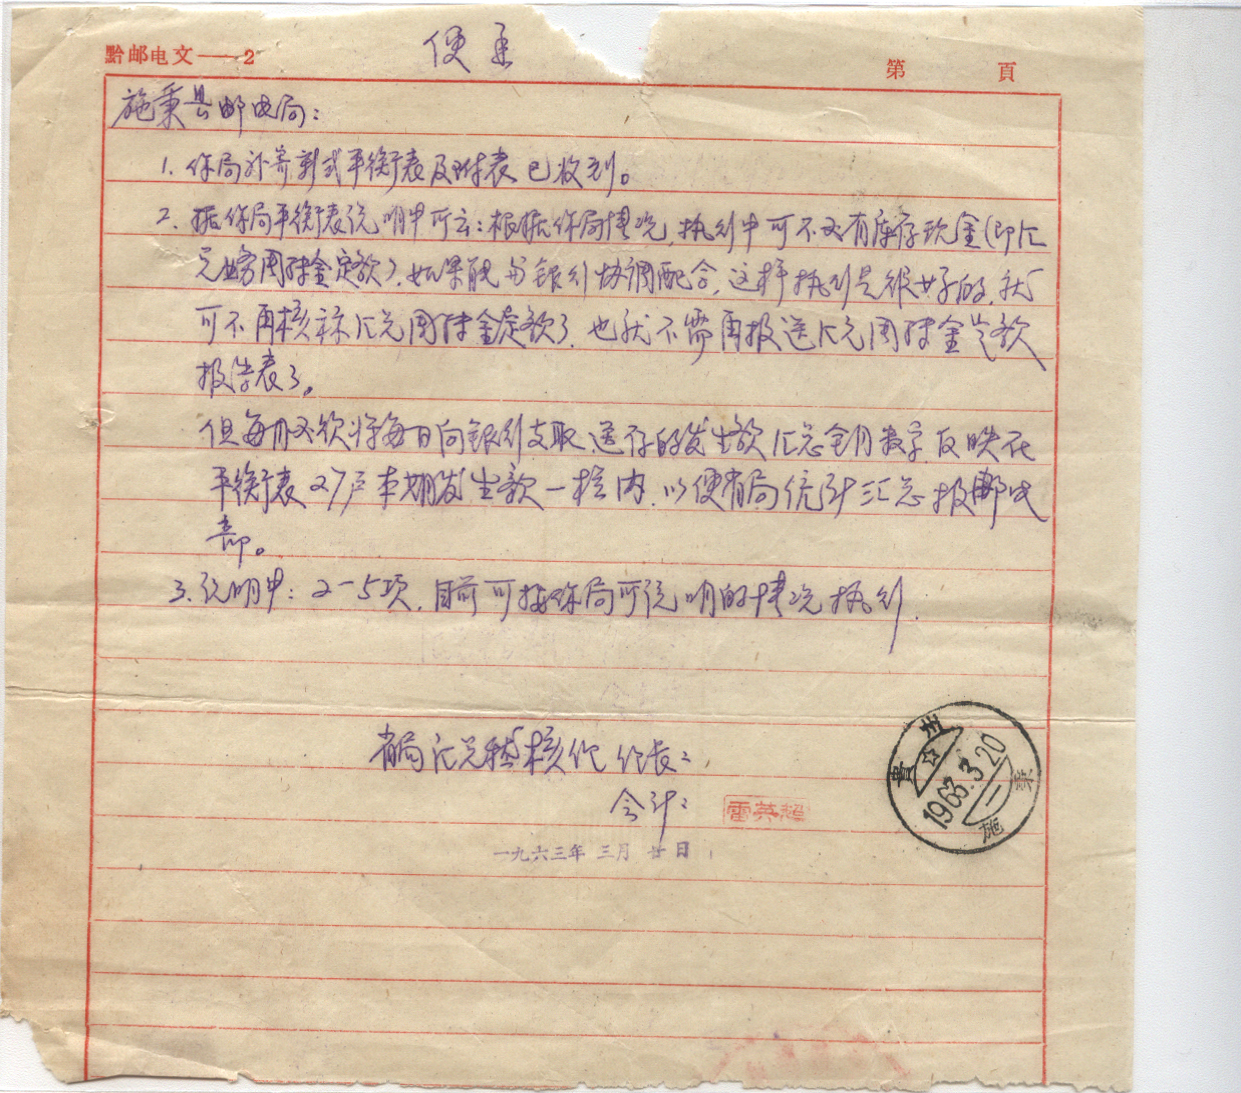 黔邮电文——2
便函
第 頁
施秉县邮电局：
1. 你局补寄新式平衡表及附表已收到。
2. 据你局平衡表说明中所云：根据你局情况，执行中可不必有库存现金（即汇
兑业务周转金定额），如果能与银行协调配合，这样执行是很好的，就
可不再核定汇兑周转金定额了，也就不需再报送汇兑周转金定额
报告表了。
但每月必须将每日向银行支取、送存的发生额汇总全月数字，反映在
平衡表27户本期发生额一栏内，以便省局统计汇总报邮电
部。
3. 说明中：2—5项，目前可按你局所说明的情况执行。
省局汇兑稽核组 组长：
会计：
雷英超
一九六三年 三月 廿日
貴州
1963.3.20
二
施秉